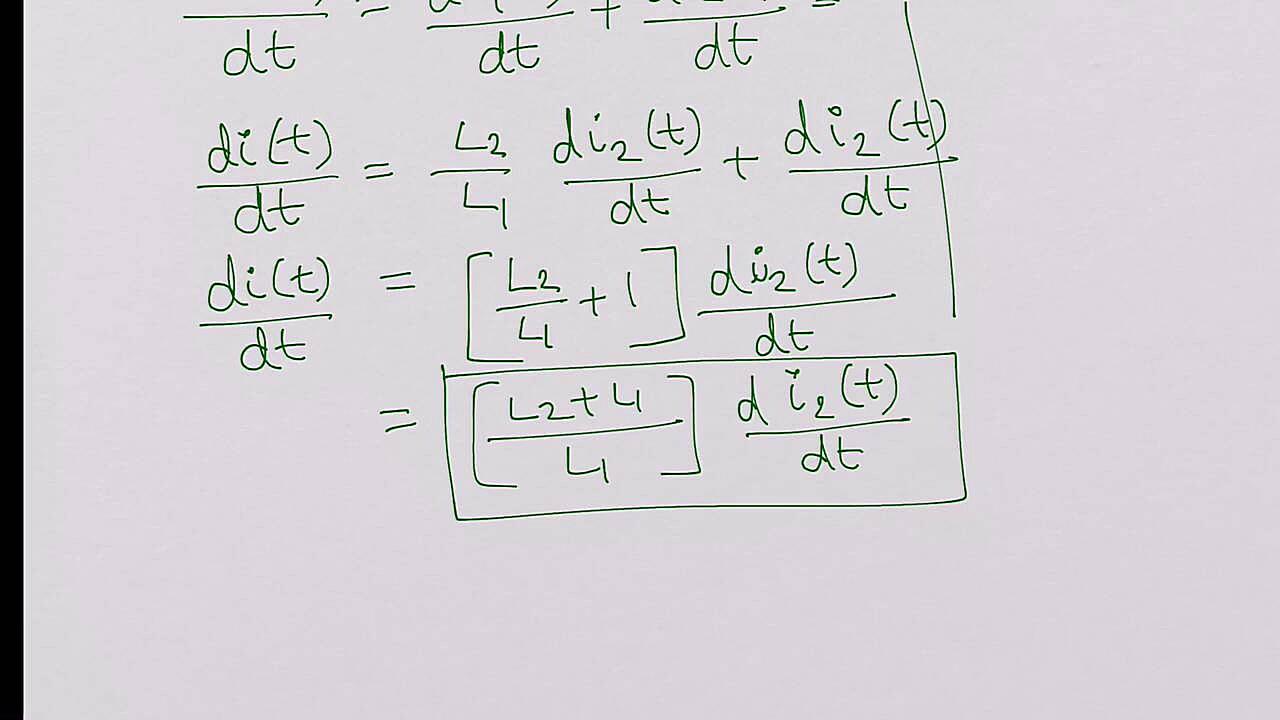 dt = dt + dt =
di(t)/dt = L2/L1 di2(t)/dt + di2(t)/dt
di(t)/dt = [L2/L1 + 1] di2(t)/dt
= [L2 + L1/L1] di2(t)/dt